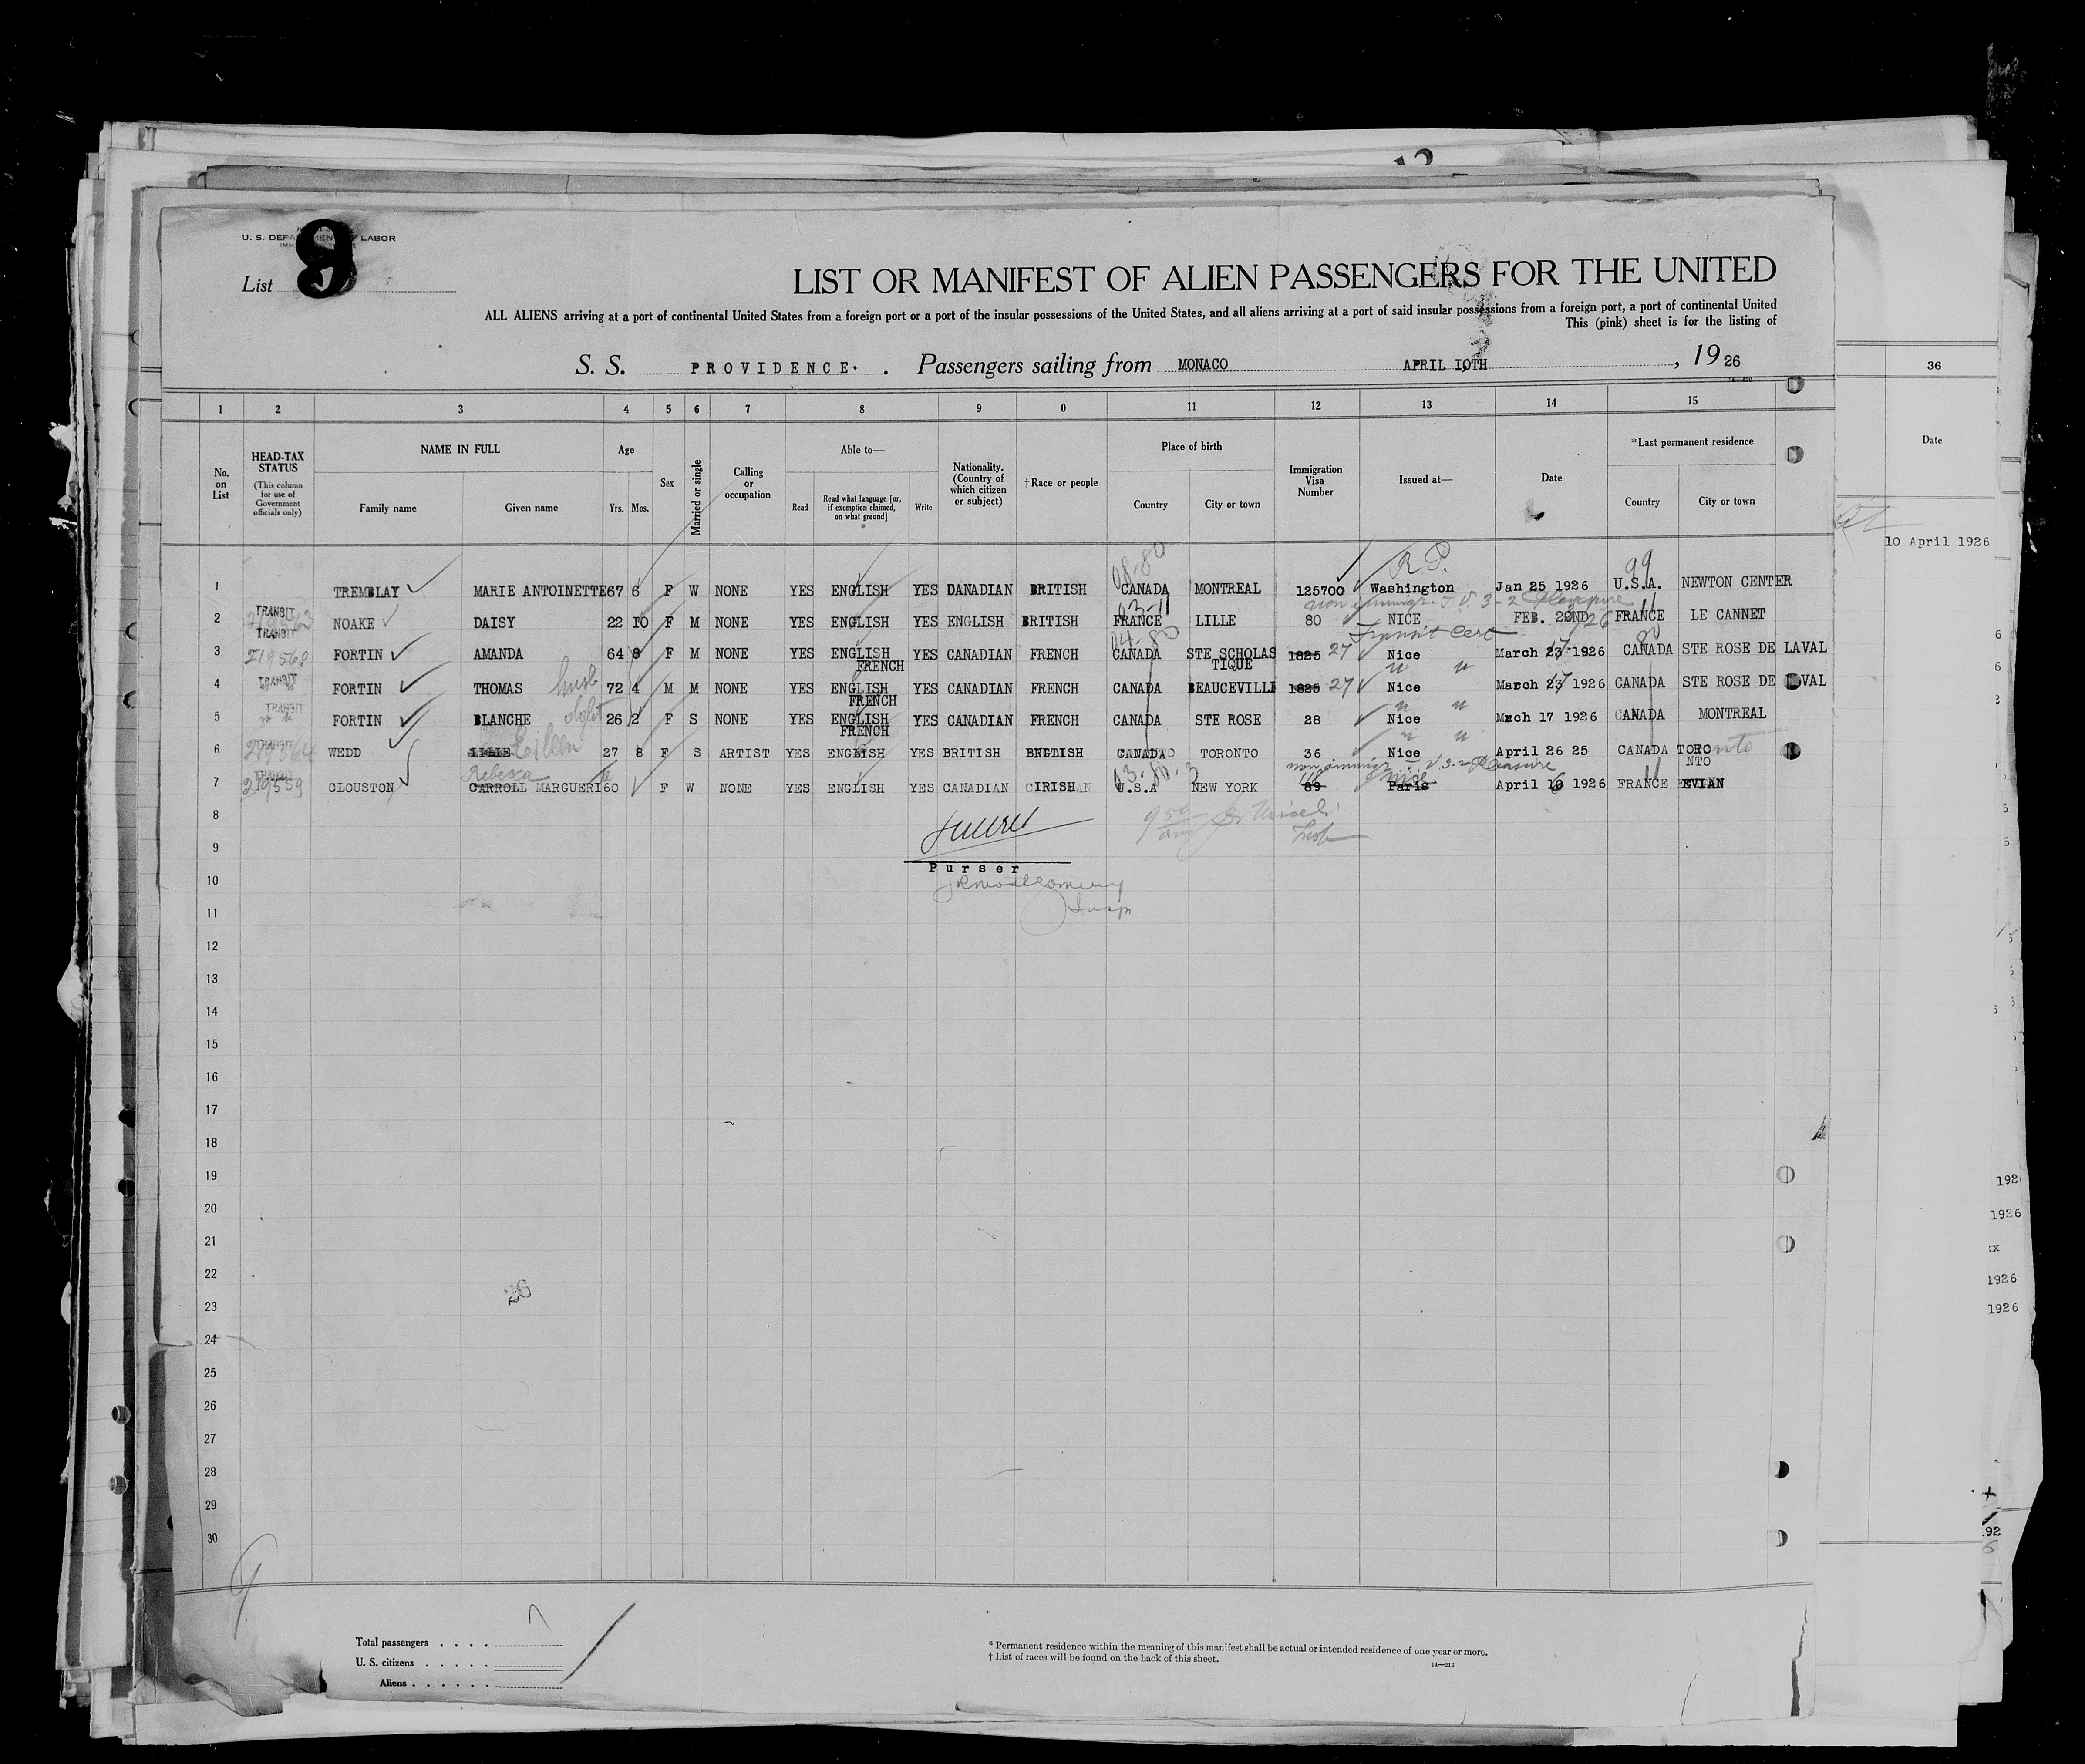 U. S. DEPARTMENT OF LABOR
List 9
LIST OR MANIFEST OF ALIEN PASSENGERS FOR THE UNITED
ALL ALIENS arriving at a port of continental United States from a foreign port or a port of the insular possessions of the United States, and all aliens arriving at a port of said insular possessions from a foreign port, a port of continental United
This (pink) sheet is for the listing of
S. S. PROVIDENCE. Passengers sailing from MONACO APRIL 10TH, 19 26
1 2 3 4 5 6 7 8 9 0 11 12 13 14 15 36
No. on List HEAD-TAX STATUS (This column for use of Government officials only) NAME IN FULL Age Sex Married or single Calling or occupation Able to— Nationality. (Country of which citizen or subject) †Race or people Place of birth Immigration Visa Number Issued at— Date *Last permanent residence Date
Family name Given name Yrs. Mos. Read Read what language [or, if exemption claimed, on what ground] Write Country City or town Country City or town
10 April 1926
08-80 R.P. 99
1 TREMBLAY MARIE ANTOINETTE 67 6 F W NONE YES ENGLISH YES DANADIAN BRITISH CANADA MONTREAL 125700 Washington Jan 25 1926 U.S.A. NEWTON CENTER
TRANSIT 03-11 11
2 NOAKE DAISY 22 10 F M NONE YES ENGLISH YES ENGLISH BRITISH FRANCE LILLE 80 NICE FEB. 22ND 26 FRANCE LE CANNET
TRANSIT 04-80 Transit Cert 80
3 219568 FORTIN AMANDA 64 8 F M NONE YES ENGLISH FRENCH YES CANADIAN FRENCH CANADA STE SCHOLASTIQUE 1825 27 Nice March 23 17 1926 CANADA STE ROSE DE LAVAL
4 TRANSIT FORTIN THOMAS husb 72 4 M M NONE YES ENGLISH FRENCH YES CANADIAN FRENCH CANADA BEAUCEVILLE 1825 27 Nice March 23 17 1926 CANADA STE ROSE DE LAVAL
5 TRANSIT FORTIN BLANCHE dght 26 2 F S NONE YES ENGLISH FRENCH YES CANADIAN FRENCH CANADA STE ROSE 28 Nice March 17 1926 CANADA MONTREAL
6 TRANSIT WEDD LILLIE Eileen 27 8 F S ARTIST YES ENGLISH YES BRITISH ENGLISH CANADA TORONTO 36 Nice April 26 25 CANADA TORONTO
Rebecca 03-80-3 non immigr. V 3-2 Pleasure 11
7 219559 CLOUSTON CARROLL MARGUERITE 60 F W NONE YES ENGLISH YES CANADIAN IRISH U.S.A NEW YORK 89 Paris Nice April 6 1926 FRANCE EVIAN
8
9
Purser
10
11
12
13
14
15
16
17
18
19
20
21
22
23
26
24
25
26
27
28
29
30
9
Total passengers . . . . 7
U. S. citizens . . . . .
Aliens . . . . . .
* Permanent residence within the meaning of this manifest shall be actual or intended residence of one year or more.
† List of races will be found on the back of this sheet.
14—213